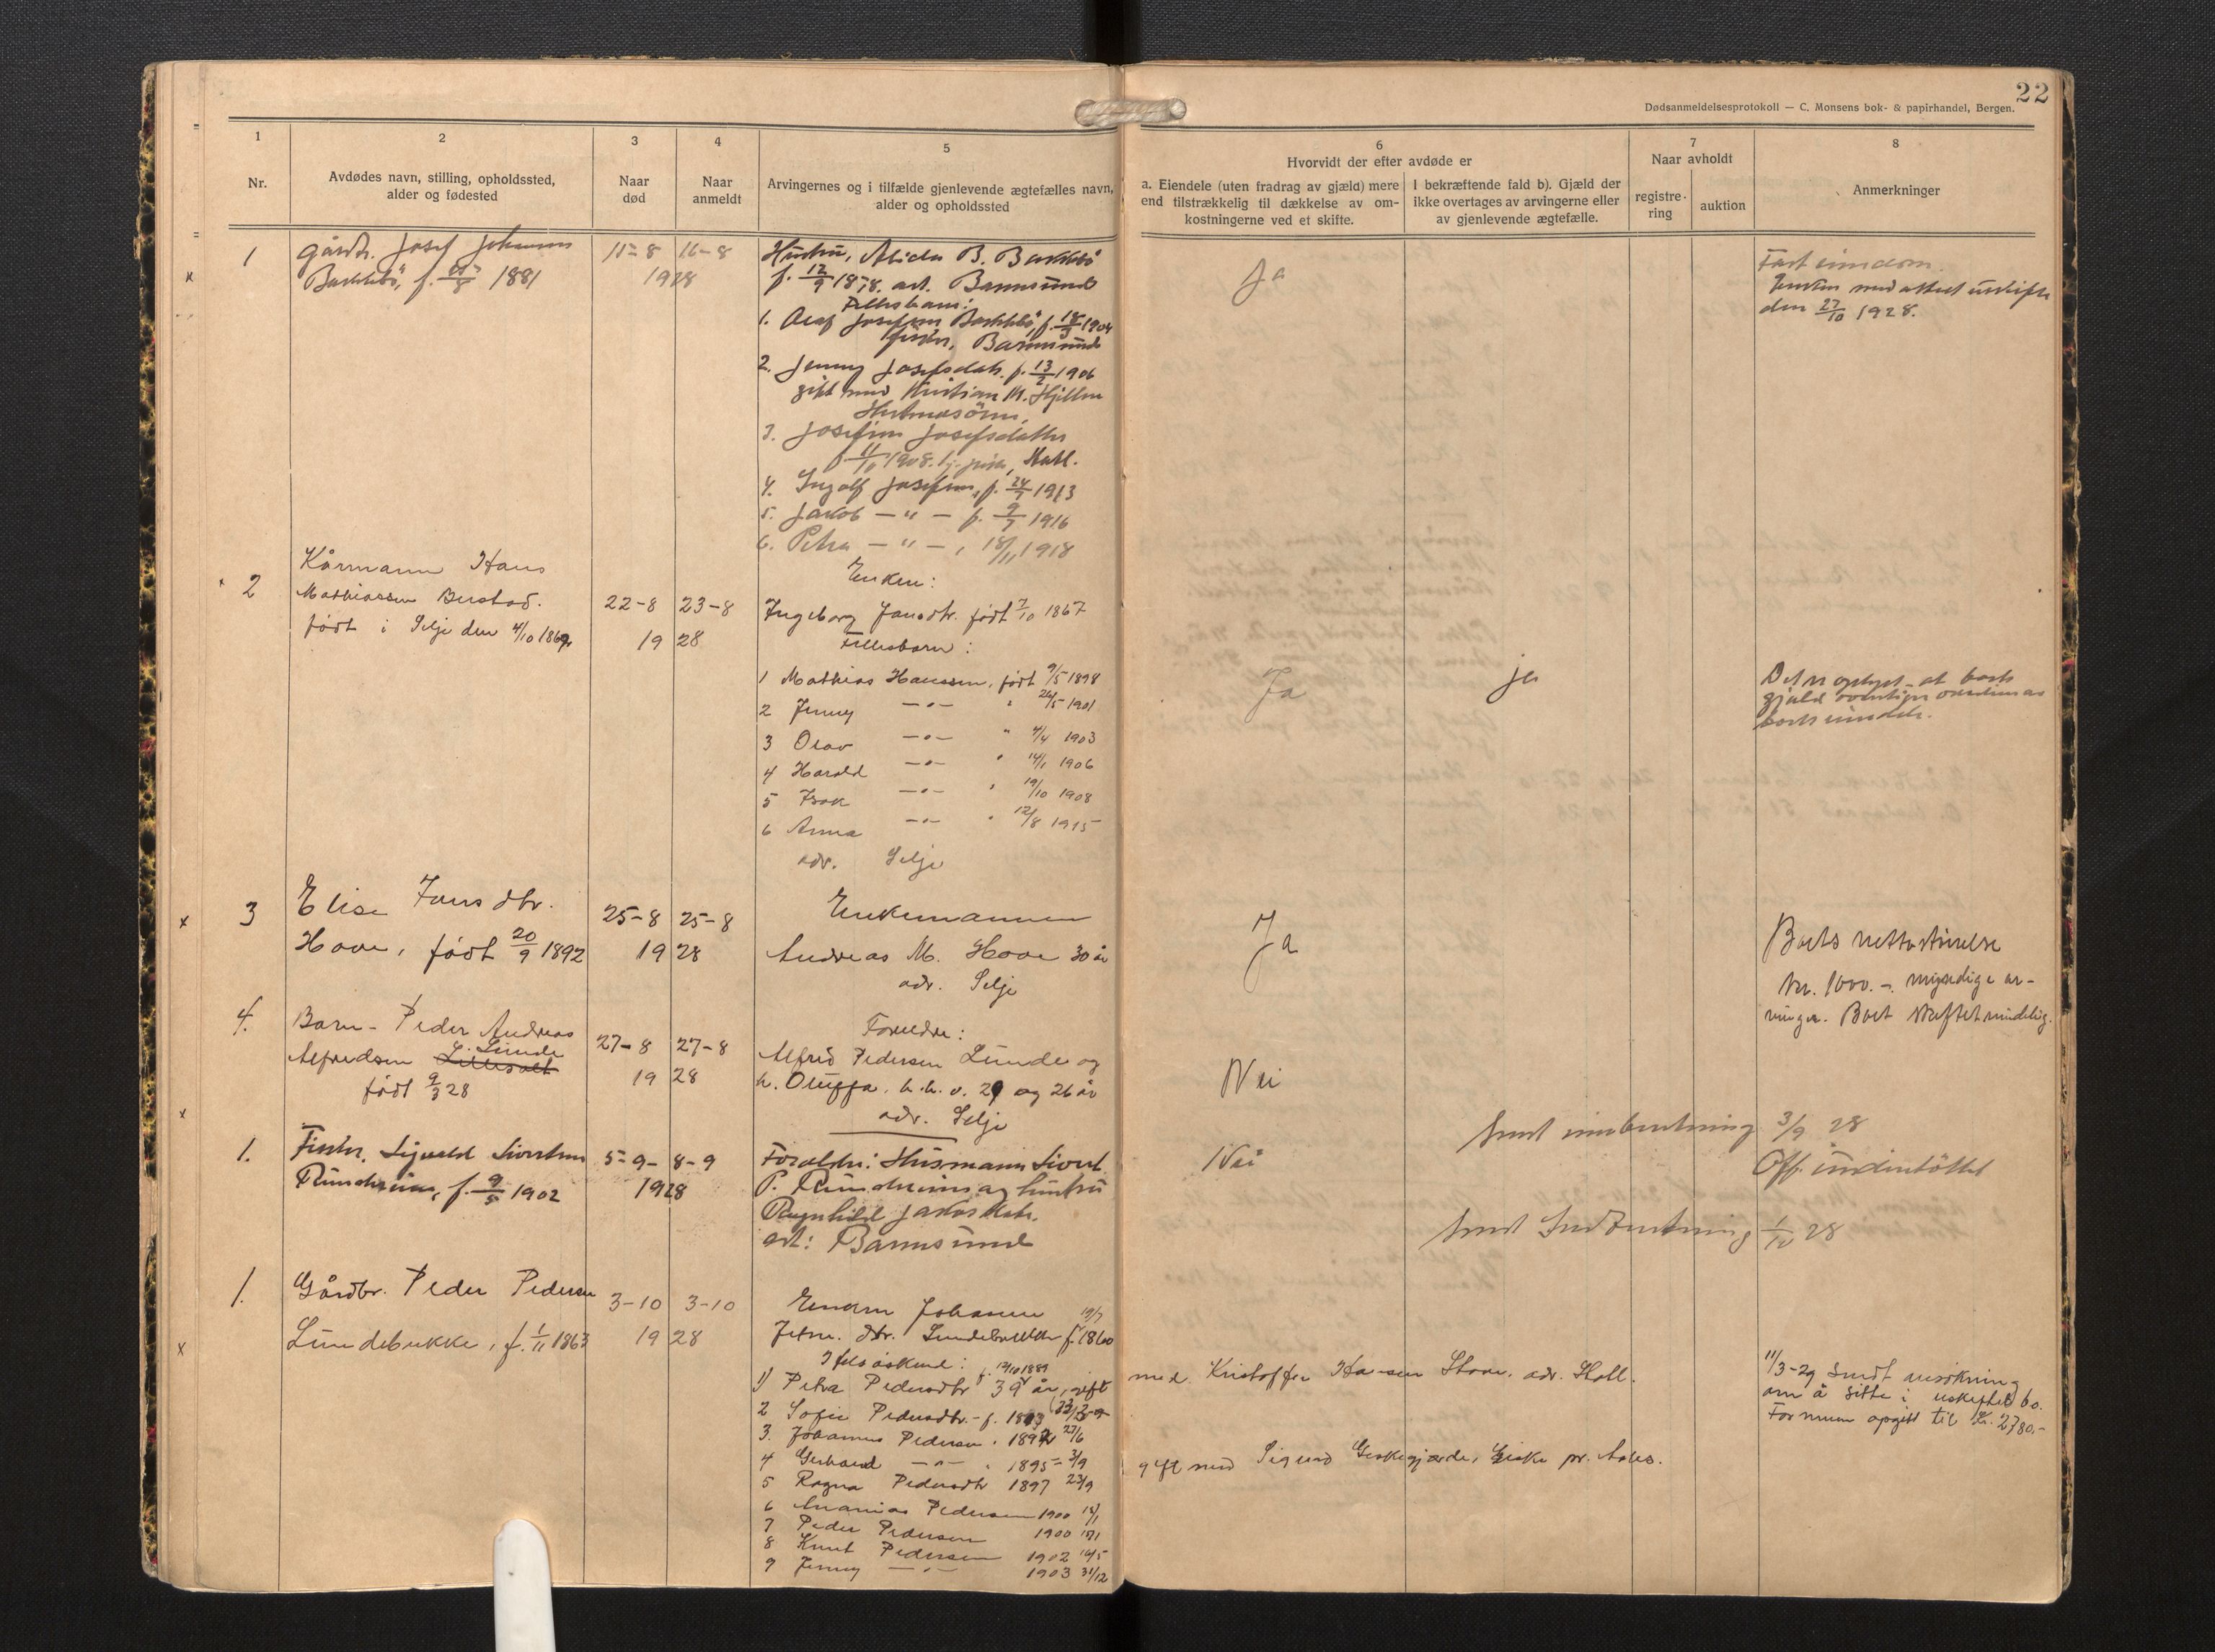 22
Dødsanmeldelsesprotokoll — C. Monsens bok- & papirhandel, Bergen.
1
2
3
4
5
6
7
8
Nr.
Avdødes navn, stilling, opholdssted,
alder og fødested
Naar
død
Naar
anmeldt
Arvingernes og i tilfælde gjenlevende ægtefælles navn,
alder og opholdssted
Hvorvidt der efter avdøde er
a. Eiendele (uten fradrag av gjæld) mere
end tilstrækkelig til dækkelse av om-
kostningerne ved et skifte.
I bekræftende fald b). Gjæld der
ikke overtages av arvingerne eller
av gjenlevende ægtefælle.
Naar avholdt
registre-
ring
auktion
Anmerkninger
1 Gårdbr. Josef Johansen
f. 1881
11-8 16-8
1928
Hustru, B.
f. 12/9 1878. adr. Barmsund
Fellesbarn:
1. Olaf Josefsen f. 18/3 1904
fisker, Barmsund
2. Jenny Josefsdatr. f. 13/2 1906
gift med Kristian M.
3. Josefine Josefsdatter
1908.
4. Ingolf Josefsen, f. 24/7 1913
5. Jakob — " — f. 9/7 1916
6. Petra — " — , 18/11 1918
Ja
Fast eiendom.
Enken med attest uskifte
den 27/10 1928.
x
x 2
Kårmann Hans
Mathiassen Berstad.
født i Selje den 4/10 1869
22-8 23-8
19 28
Enken:
Ingeborg Jansdtr. født 7/10 1867
Fellesbarn:
1 Mathias Hanssen, født 9/5 1898
2 Jenny —"— " 26/5 1901
3 Olav —"— " 4/4 1903
4 Harald —"— " 14/1 1906
5 Isak —"— " 19/10 1908
6 Anna —"— " 12/8 1915
adr. Selje
Ja
ja
Det er oplyst at boets
gjæld
x 3
Elise Jansdtr.
Hove, født 20/9 1892
25-8 25-8
19 28
Enkemannen
Andreas M. Hove 30 år
adr. Selje
Ja
Boets
kr. 1000.-. myndige ar-
vinger. Boet
4.
Barn - Peder Andreas
Alfredsen L. Lunde
født 9/3 28
27-8 27-8
19 28
Foreldre:
Alfred Pedersen Lunde og
h. Oluffa. h.h.v. 29 og 26 år
adr. Selje
Nei
Sendt innberetning 3/9 28
x
1. Fisker, Sigvald Sivertsen
f. 9/5 1902
5-9- 8-9
1928
Foreldre: Husmann Sivert
P. og hustru
Ragnhild
adr: Barmsund
Nei
Off. understøttet
Sendt Indberetning 1/10 28
1. Gårdbr. Peder Pedersen
Lundebukke, f. 1/11 1863
3-10 3-10
19 28
x
Enken Johanne 19/7
dtr. Lundebukke f. 1860
f. 12/10 1889
1) Petra Pedersdtr 39 år, gift
med Kristoffer Hansen adr. Hatl.
2 Sofie Pedersdtr. - f. 1893
3. Johannes Pedersen 23/6
4 Gerhard —"— " 1895 - 3/9
5 Ragna Pedersdtr 1897 23/9
gift med Sigurd Giskegjerde, Giske pr. Aales.
6 Ananias Pedersen 1900
7 Peder Pedersen 1900
8 Knut Pedersen 1902 16/5
9 Jenny —"— 1903 31/12
11/3-29 Sendt ansøkning
om å sitte i uskiftet bo.
Formuen opgitt til Kr. 2780.-